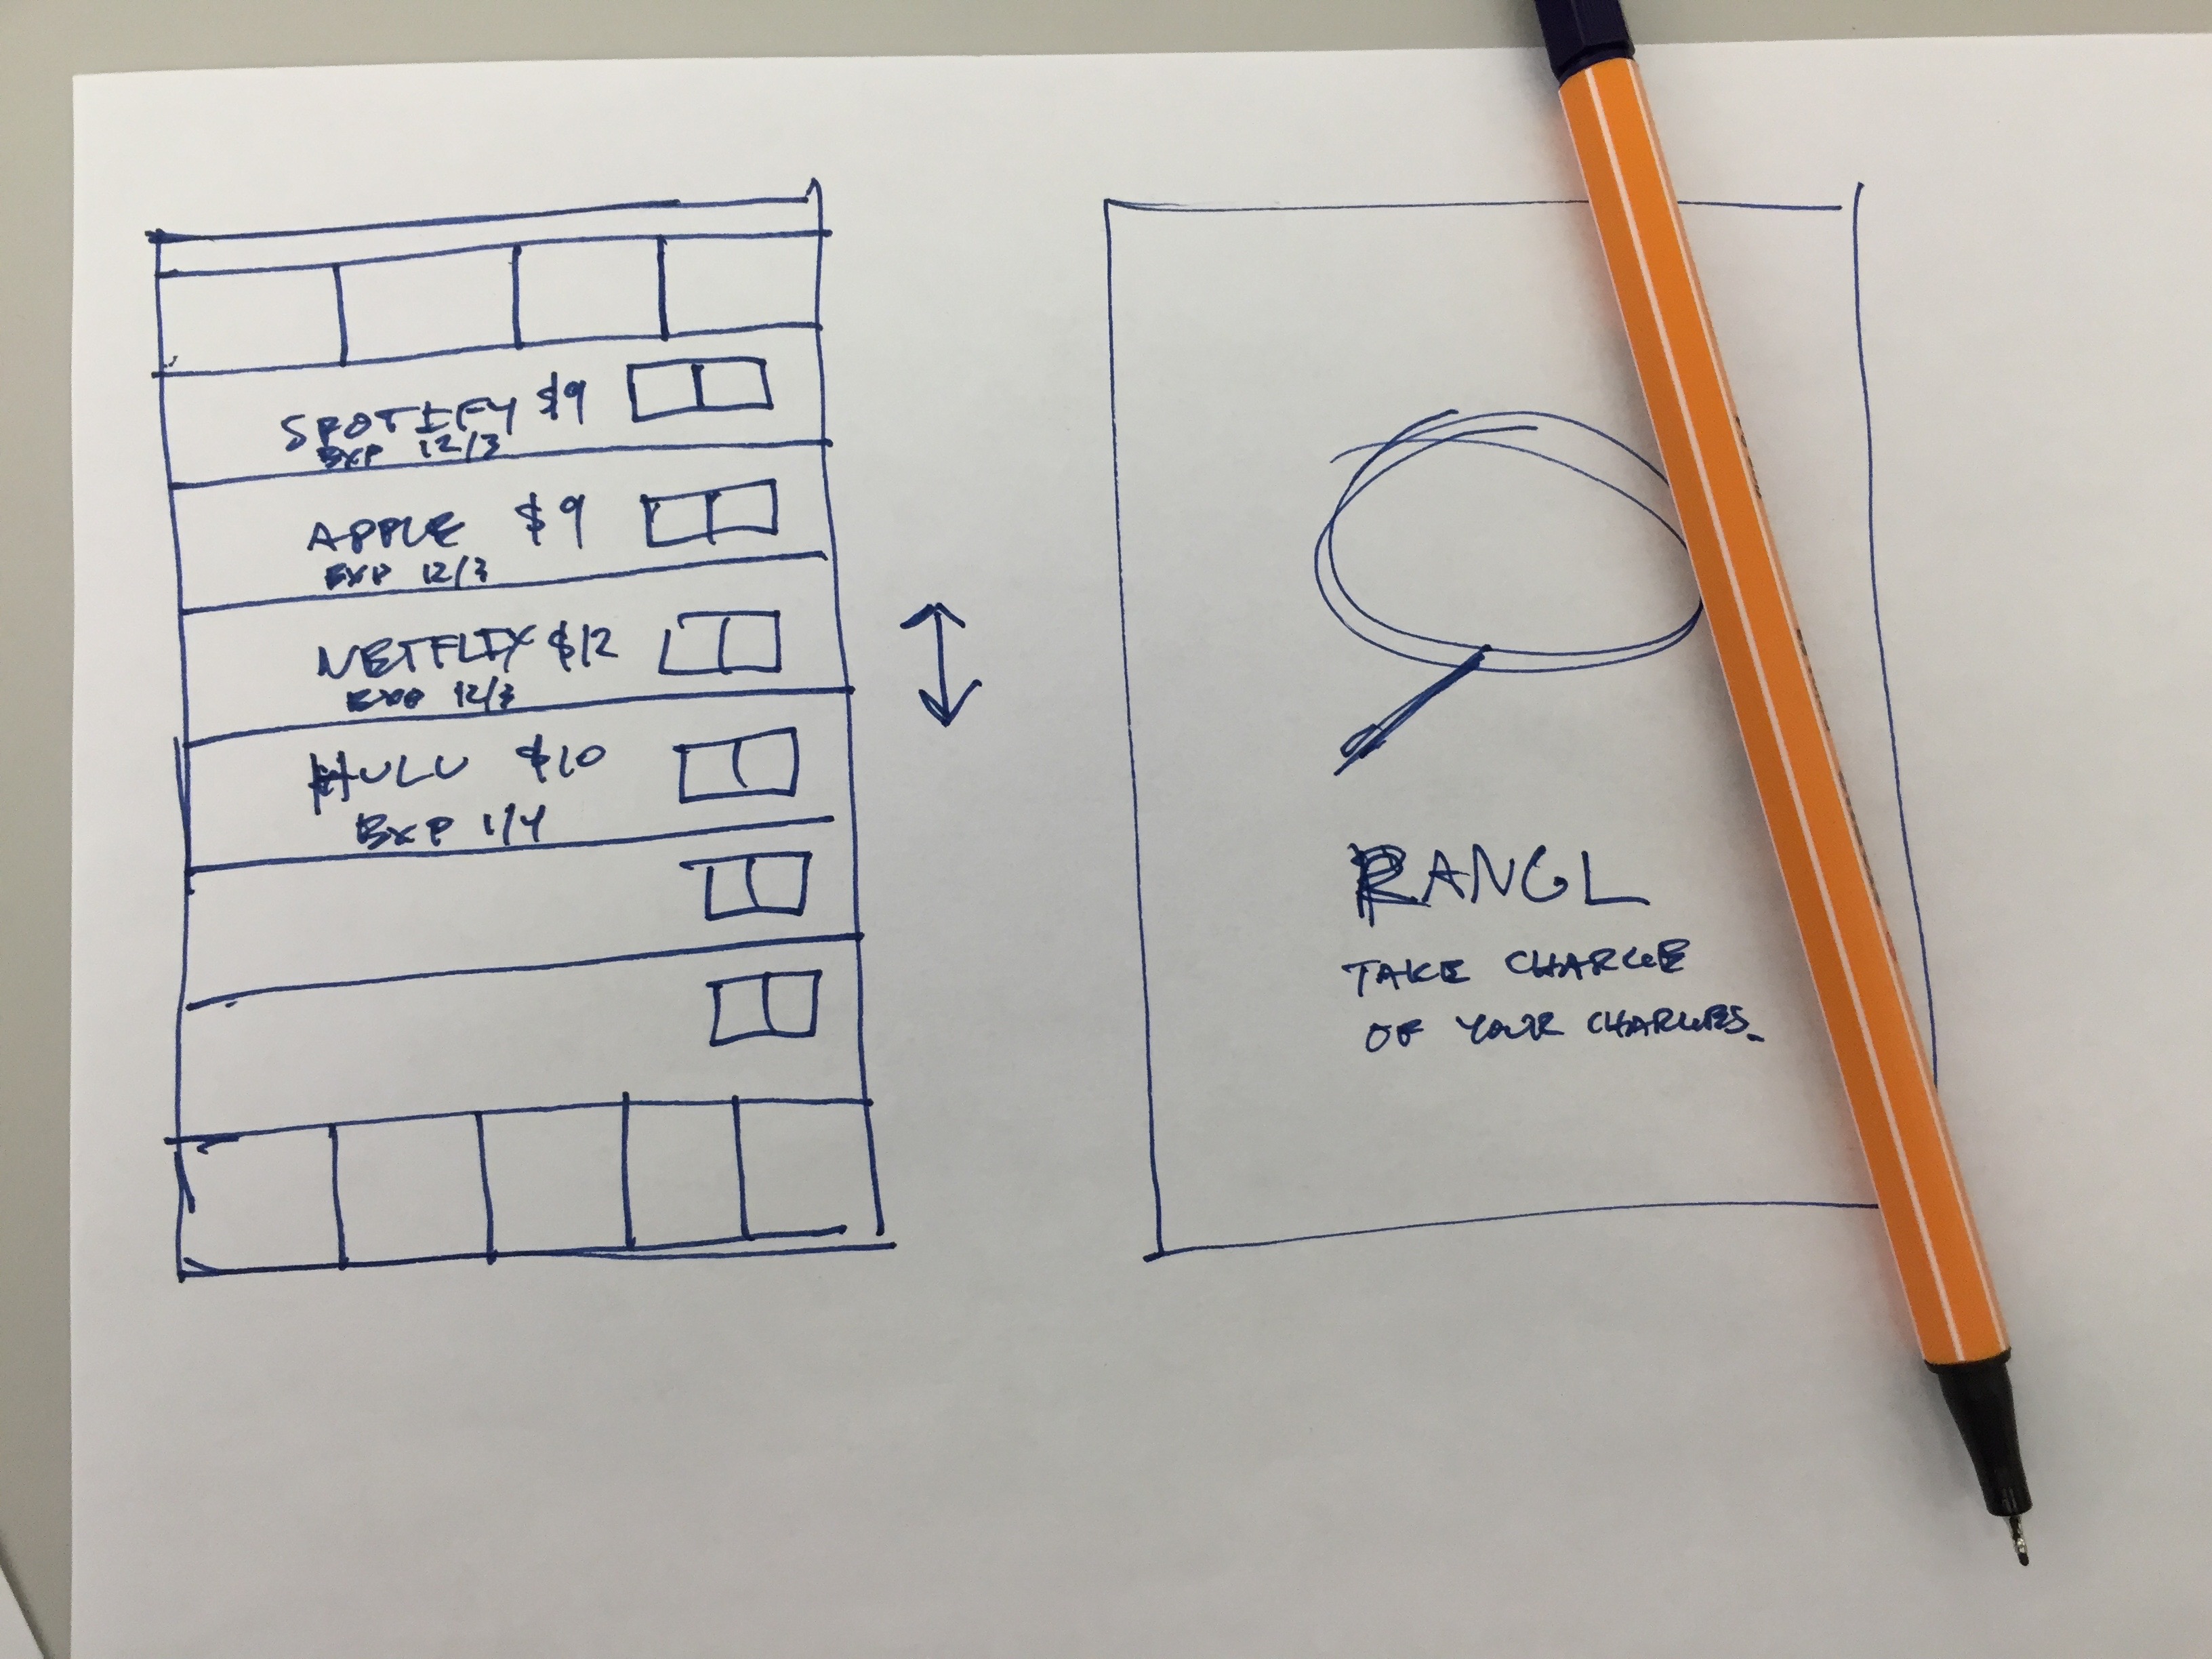 SPOTIFY $9
EXP 12/3
APPLE $9
EXP 12/3
NETFLIX $12
EXP 12/3
HULU $10
EXP 1/4
RANGL
TAKE CHARGE
OF YOUR CHARGES.